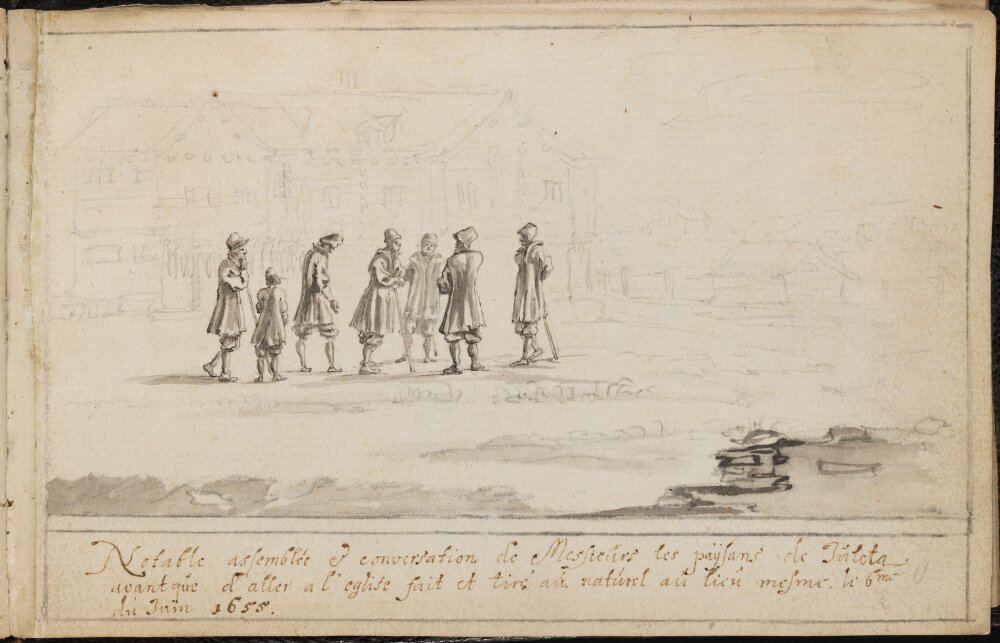 Notable assemblée & conversation de Messieurs les paÿsans de Juleta
avant que d'aller a l'eglise fait et tiré aú naturel aú lieu mesme. le 6me
du Juin 1655.